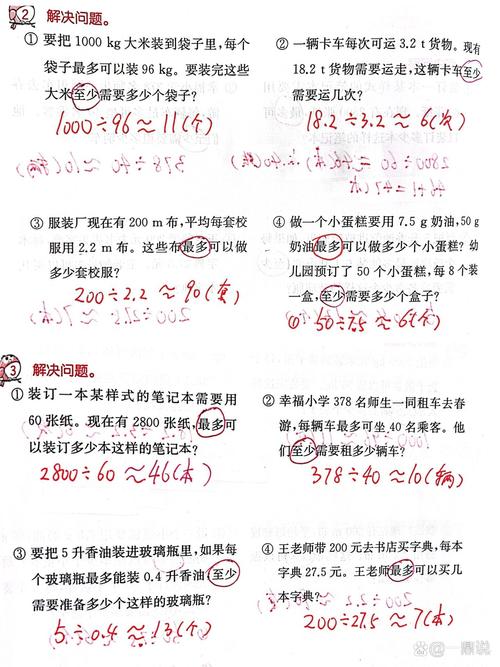 2 解决问题。
① 要把 1000 kg 大米装到袋子里,每个
袋子最多可以装 96 kg。要装完这些
大米至少需要多少个袋子?
1000÷96≈11(个)
② 一辆卡车每次可运 3.2 t 货物。现有
18.2 t 货物需要运走,这辆卡车至少
需要运几次?
18.2÷3.2≈6(次)
③ 服装厂现在有 200 m 布,平均每套校
服用 2.2 m 布。这些布最多可以做
多少套校服?
200÷2.2≈90(套)
④ 做一个小蛋糕要用 7.5 g 奶油,50 g
奶油最多可以做多少个小蛋糕?幼
儿园预订了 50 个小蛋糕,每 8 个装
一盒,至少需要多少个盒子?
① 50÷7.5≈6(个)
3 解决问题。
① 装订一本某样式的笔记本需要用
60 张纸。现在有 2800 张纸,最多可
以装订多少本这样的笔记本?
2800÷60≈46(本)
② 幸福小学 378 名师生一同租车去春
游,每辆车最多可坐 40 名乘客。他
们至少需要租多少辆车?
378÷40≈10(辆)
③ 要把 5 升香油装进玻璃瓶里,如果每
个玻璃瓶最多能装 0.4 升香油,至少
需要准备多少个这样的玻璃瓶?
5÷0.4≈13(个)
④ 王老师带 200 元去书店买字典,每本
字典 27.5 元。王老师最多可以买几
本字典?
200÷27.5≈7(本)
@一鼎说